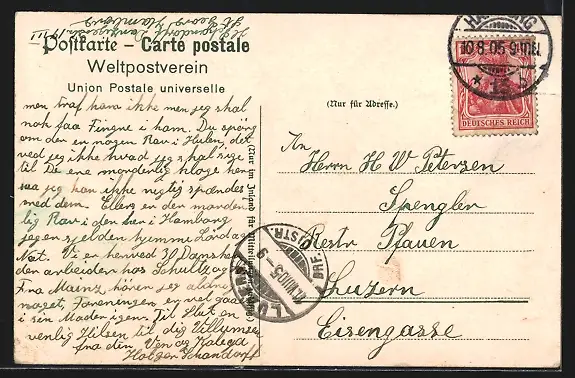 Postkarte – Carte postale
Weltpostverein
Union Postale universelle
(Nur für Adresse.)
DEUTSCHES REICH
men traf ham ikke men jeg skal
nok faa Fingre i ham. Du spörg
om der en nogen Rav i Hulen, det
ved jeg ikke hvad jeg skal sige
til. De ene manderlig kloge her
saa jeg kan ikke rigtig spændes
med dem. Ellers en den mander
lig Rav i den hen i Hamborg
jeg en sjelden hjemme Lördag
Nat. Vi en henved 30 Danske
den arbeiden hos Schultz og
Fra Mainz, hören jeg aldrig
noget, Foreningen en ved godt
i sin Maden igen. Til Slut en
venlig Hilsen til dig Villumsen
fra din Ven og Kolega
Holger Schandorff
An
Herrn H W Petersen
Spengler
Restr Pfauen
Luzern
Eisengasse